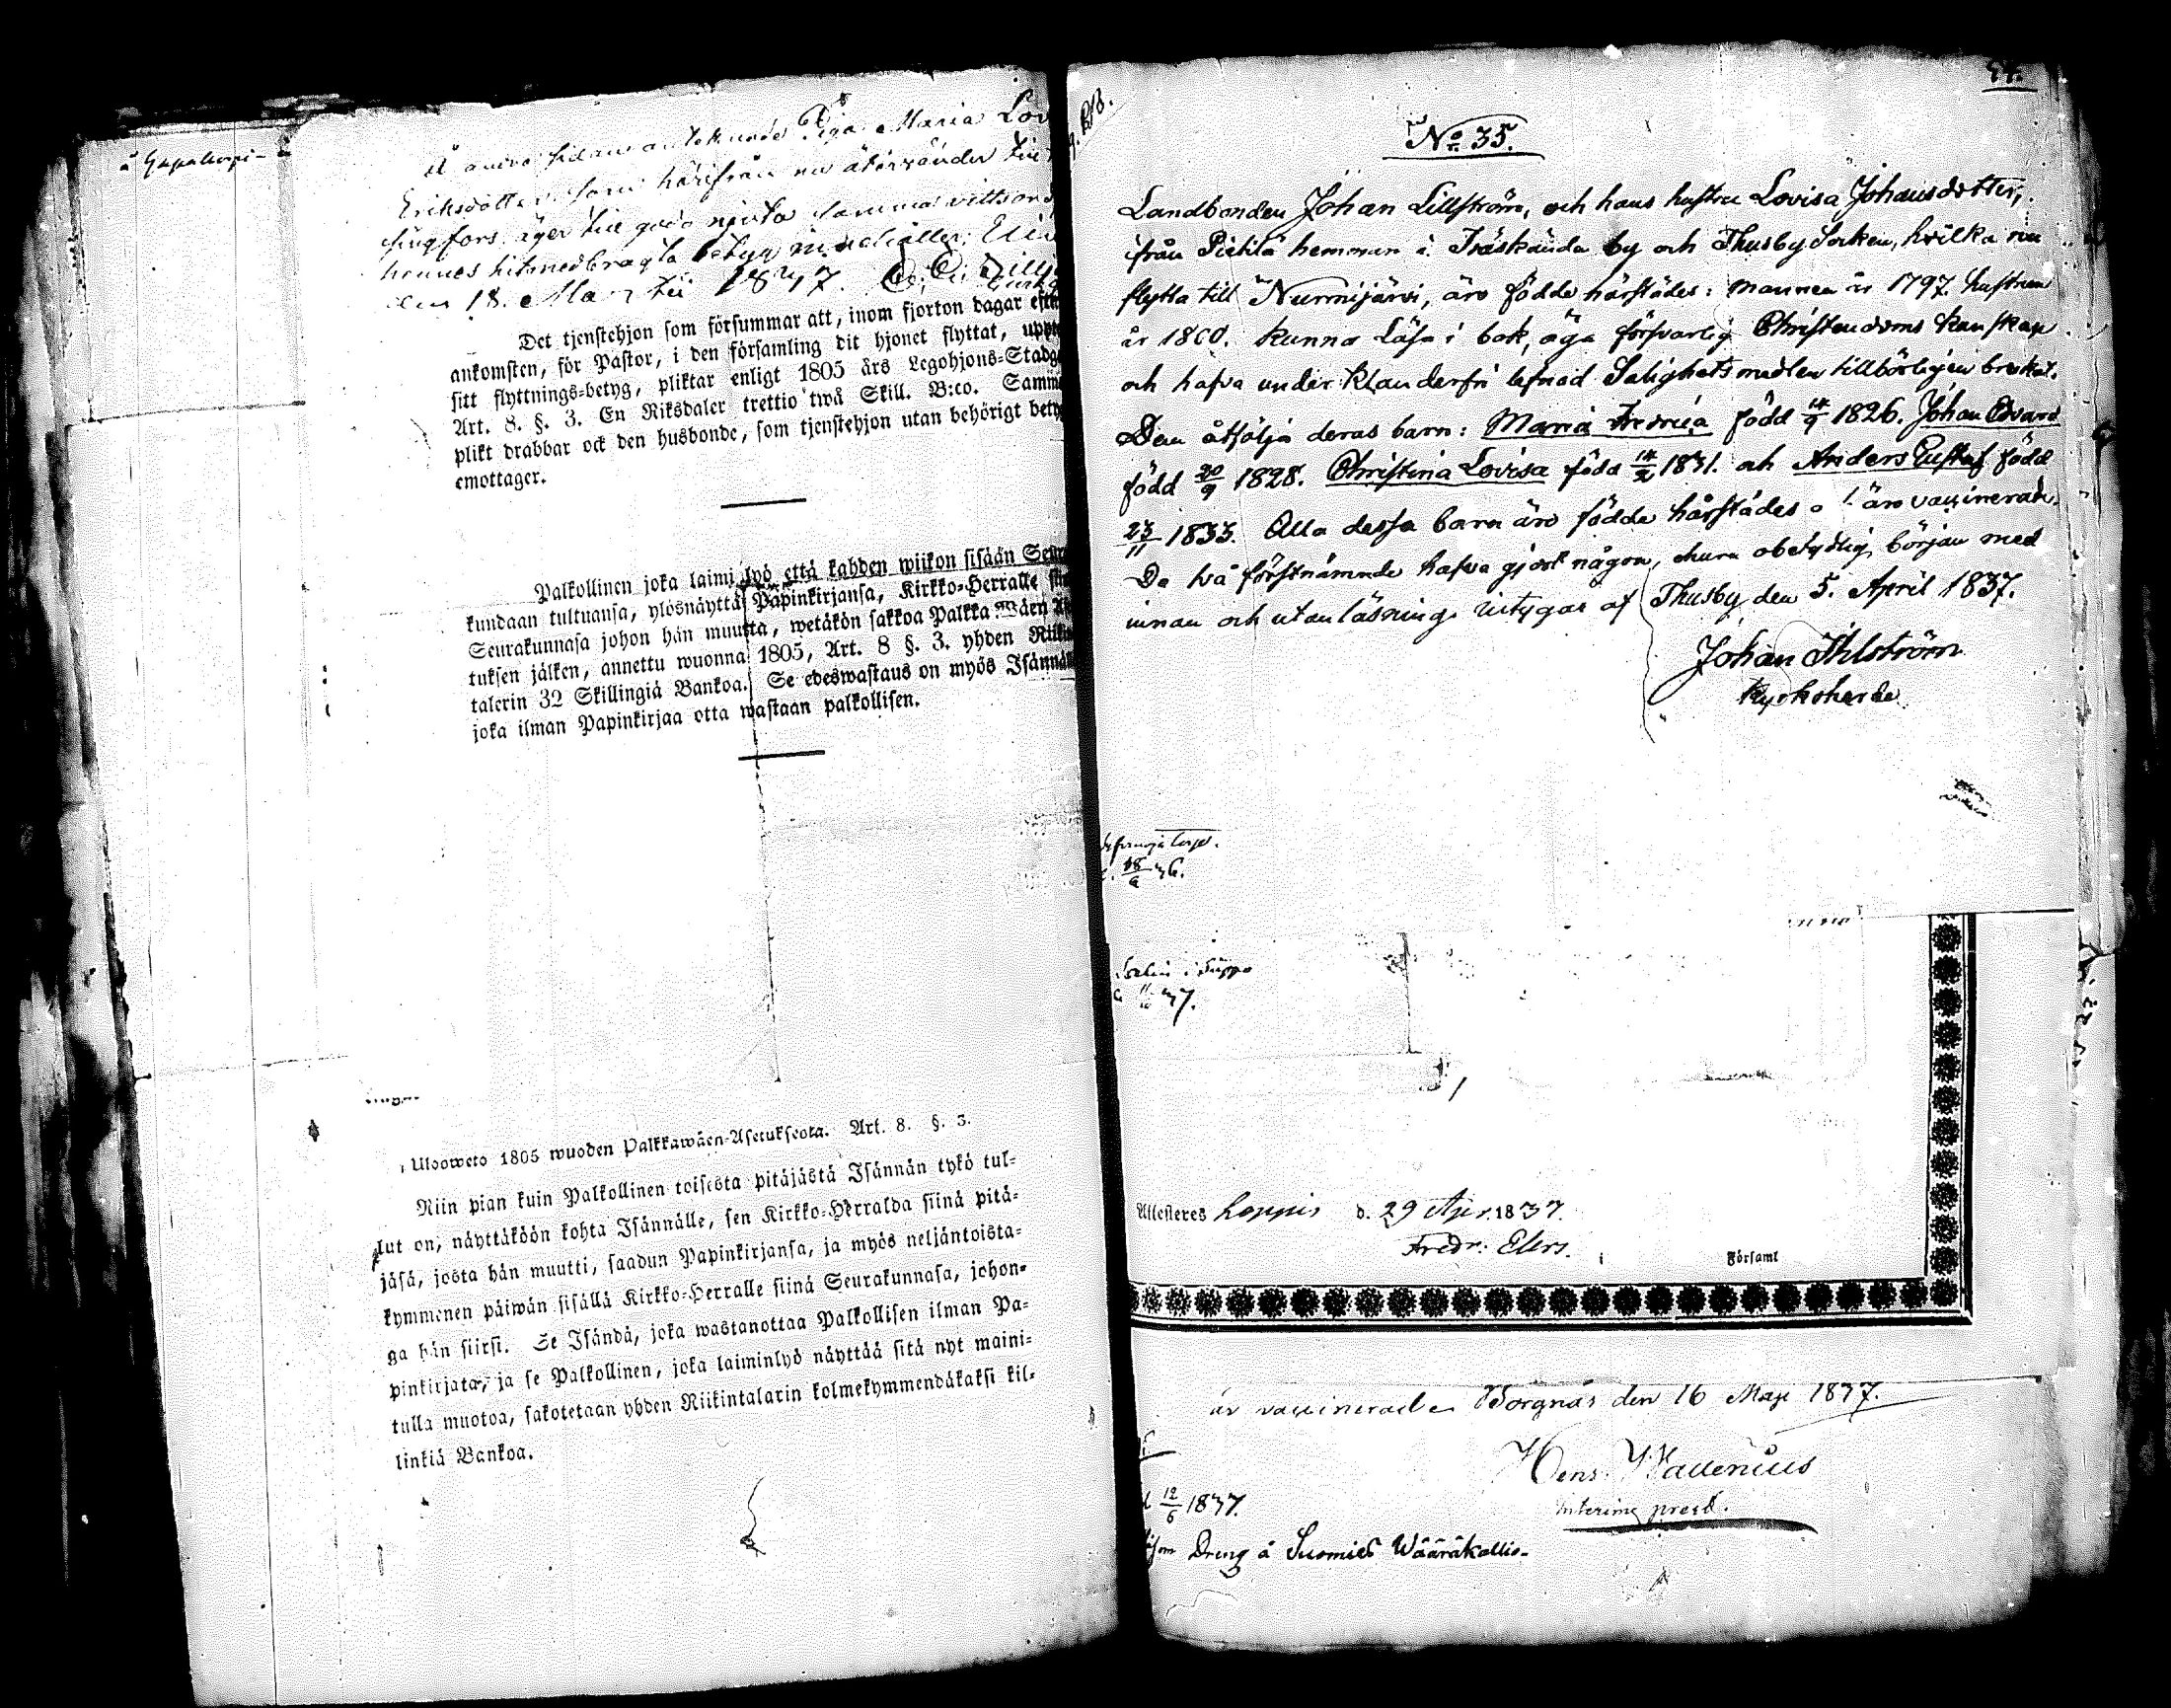 å Gunakorpi
å andra sidan antecknade Piga Maria Lov
Eriksdotter som härifrån nu återvänder till
singfors äger till godo njuta samma vittsord
hennes hitmedbragta betyg innehåller;
den 18. Martii 1837.
Det tjenstehjon som försummar att, inom fjorton dagar efte
ankomsten, för Pastor, i den församling dit hjonet flyttat, uppte
sitt flyttnings-betyg, pliktar enligt 1805 års Legohjons-Stadga
Art. 8. §. 3. En Riksdaler trettio twå Skill. B:co. Samma
plikt drabbar ock den husbonde, som tjenstehjon utan behörigt bety
emottager.
Palkollinen joka laimi lyö että kahden wiikon sisään Seura
kundaan tultuansa, ylösnäyttä Papinkirjansa, Kirkko-Herralle sii
Seurakunnasa johon hän muutta, wetäkön sakkoa Palkka wäen A
tuksen jälken, annettu wuonna 1805, Art. 8 §. 3. yhden Riikin
talerin 32 Skillingiä Bankoa. Se edeswastaus on myös Isännäll
joka ilman Papinkirjaa otta wastaan palkollisen.
Uloosweto 1805 wuoden Palkkawäen-Asetuksesta. Art. 8. §. 3.
Niin pian kuin Palkollinen toisesta pitäjästä Isännän tykö tul-
lut on, näyttäköön kohta Isännälle, sen Kirkko-Herralda siinä pitä-
jäsä, josta hän muutti, saadun Papinkirjansa, ja myös neljäntoista-
kymmenen päiwän sisällä Kirkko-Herralle siinä Seurakunnasa, johon-
ga hän siirsi. Se Isändä, joka wastanottaa Palkollisen ilman Pa-
pinkirjata, ja se Palkollinen, joka laiminlyö näyttää sitä nyt maini-
tulla muotoa, sakotetaan yhden Riikintalarin kolmekymmendäkaksi kil-
linkiä Bankoa.
No 35.
Landbonden Johan Lillström, och hans hustru Lovisa Johansdotter,
ifrån Pietilä hemman i Träskända by och Thusby Socken, hvilka nu
flytta till Nurmijärvi, äro födde härstädes: mannen år 1797. hustrun
år 1800. kunna Läsa i bok, äga försvarlig Christendoms kunskap
och hafva under klanderfri lefnad Salighetsmedlen tillbörligen brukat.
Dem åtfölja deras barn: Maria Fredrica född 14/9 1826. Johan Edvard
född 20/9 1828. Christina Lovisa född 14/2 1831. och Anders Gustaf född
23/11 1833. Alla dessa barn äro födde härstädes o äro vaccinerade.
De två förstnämnde hafva gjort någon, ehuru obetydlig, början med
innan och utanläsning. Betygar af Thusby den 5. April 1837.
Johan Ihlström
Kyrkoherde
18/6 36.
37.
Attesteres Loppis d. 29 Apr. 1837.
Fredr. Elers.
i Församl
är vaccinerade Borgnäs den 16 Maji 1837.
Hens. Wallenius
interims prest.
12/6 1837.
som Dreng å Suomies Wääräkallio-